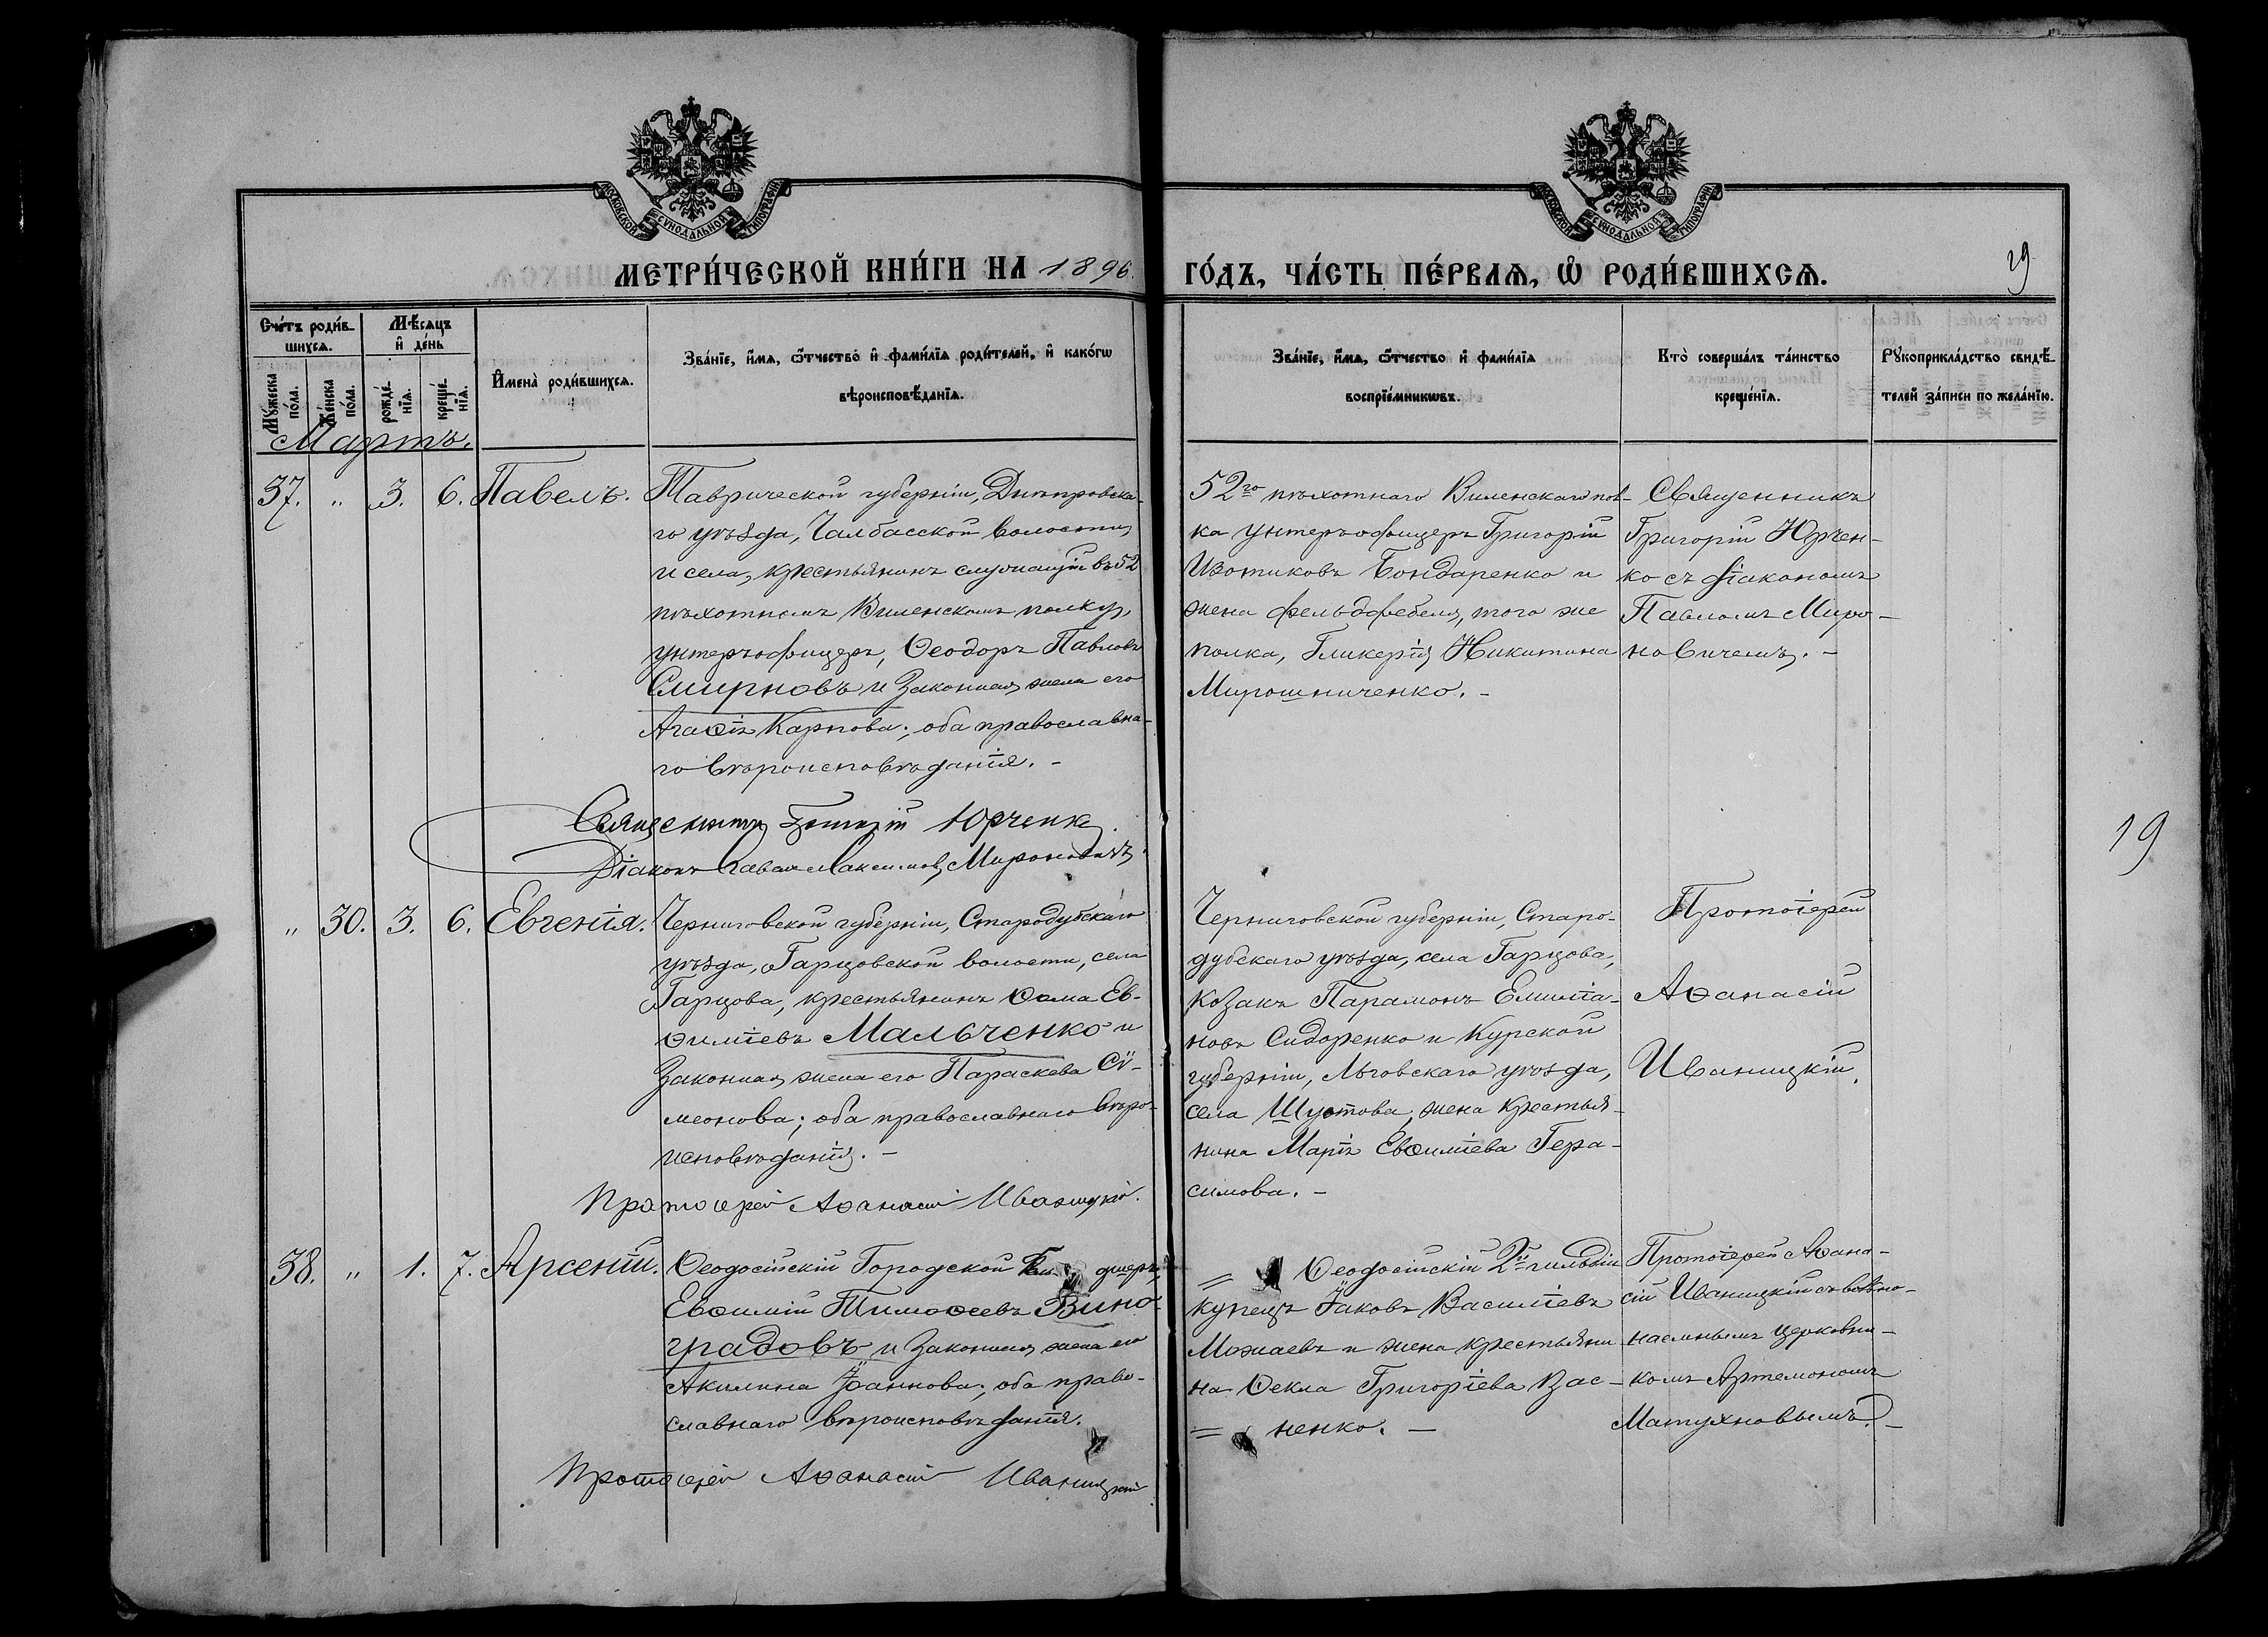 МОСКОВСКОЙ СѴНОДАЛЬНОЙ ТИПОГРАФІИ
МОСКОВСКОЙ СѴНОДАЛЬНОЙ ТИПОГРАФІИ
МЕТРИ́ЧЕСКОЙ КНИ́ГИ НА 1896.
ГО́ДЪ, ЧА́СТЬ ПЕ́РВАѦ, Ѽ РОДИ́ВШИХСѦ.
19
Сче́тъ роди́в-
шихсѧ.
Мѣ́сѧцъ
и҆ де́нь
Мꙋ́жеска
по́ла.
Же́нска
по́ла.
рожде́-
нїѧ.
креще́-
нїѧ.
И҆мена̀ роди́вшихсѧ.
Зва́нїе, и҆́мѧ, ѻ҆́тчество и҆ фами́лїѧ роди́телей, и҆ како́гѡ
вѣроисповѣ́данїѧ.
Зва́нїе, и҆́мѧ, ѻ҆́тчество и҆ фами́лїѧ
воспрїе́мникѡвъ.
Кто̀ соверша́лъ та́инство
креще́нїѧ.
Рꙋкоприкла́дство свидѣ́-
телей за́писи по жела́нїю.
Мартъ.
37. " 3. 6. Павелъ.
Таврической губерніи, Днѣпровска-
го уѣзда, Чалбасской волости,
и села, крестьянинъ служащій въ 52
пѣхотномъ Виленскомъ полку,
унтеръофицеръ, Ѳеодоръ Павловъ
Смирновъ и законная жена его
Агаѳія Карпова; оба православна-
го вѣроисповѣданія. -
52го пѣхотнаго Виленскаго пол-
ка унтеръофицеръ Григорій
Изотиковъ Бондаренко и
жена фельдфебеля, того же
полка, Гликерія Никитина
Мирошниченко. -
Священникъ
Григорій Юрчен-
ко съ діакономъ
Павломъ Миро-
новичемъ. -
Священникъ Григорій Юрченко.
Діаконъ Павелъ Максимовъ Мироновичъ.
19
" 30. 3. 6. Евгенія.
Черниговской губерніи, Стародубскаго
уѣзда, Гарцовской волости, села
Гарцова, крестьянинъ Ѳома Ев-
ѳиміевъ Мальченко и
законная жена его Параскева Сѵ-
меонова; оба православнаго вѣро-
исповѣданія. -
Черниговской губерніи, Старо-
дубскаго уѣзда, села Гарцова,
козакъ Парамонъ Емиліа-
новъ Сидоренко и Курской
губерніи, Льговскаго уѣзда,
села Шустова, жена крестья-
нина Марія Евѳиміева Гера-
симова. -
Протоіерей
Аѳанасій
Иваницкій.
Протоіерей Аѳанасій Иваницкій.
38. " 1. 7. Арсеній.
Ѳеодосійскій Городской
Евѳимій Тимоѳеевъ Вино-
градовъ и законная жена его
Акилина Іоаннова; оба право-
славнаго вѣроисповѣданія.
= Ѳеодосійскій 2й гильдіи
купецъ Іаковъ Василіевъ
Можаевъ и жена крестьяни-
на Ѳекла Григоріева Вас-
= ненко. -
Протоіерей Аѳана-
сій Иваницкій съ вольно-
наемнымъ церковни-
комъ Артемономъ
Матухновымъ. -
Протоіерей Аѳанасій Иваницкій